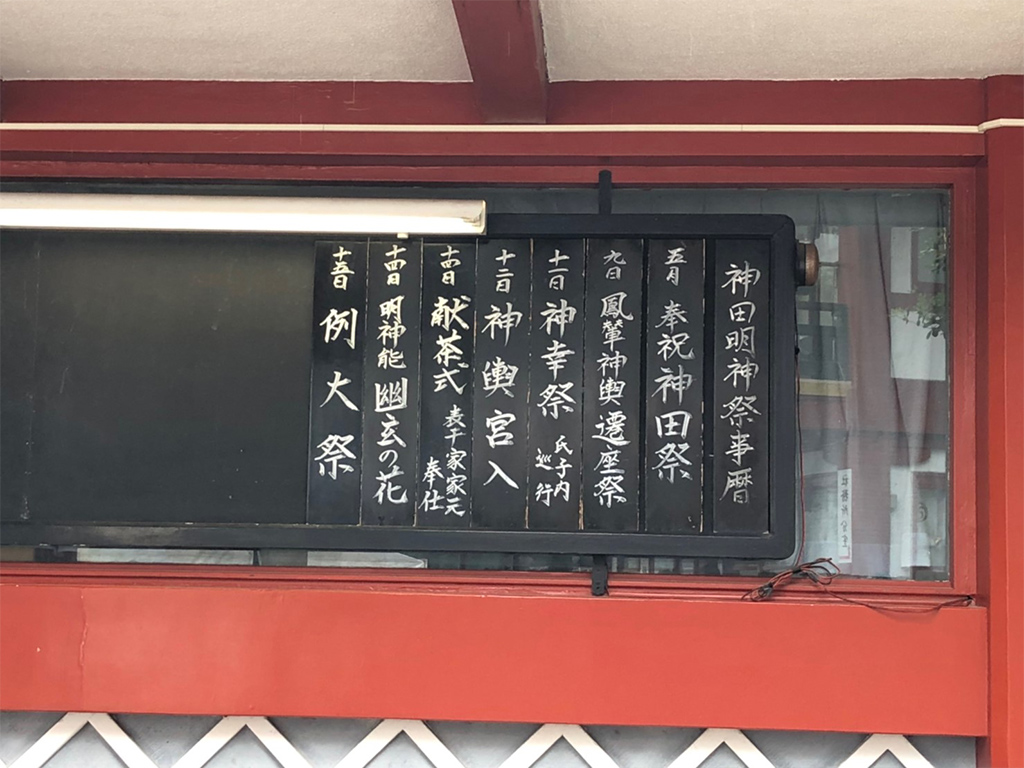 神田明神祭事暦
五月 奉祝神田祭
九日 鳳輦神輿遷座祭
十一日 神幸祭 氏子内巡行
十二日 神輿宮入
十四日 献茶式 表千家家元奉仕
十四日 明神能 幽玄の花
十五日 例大祭